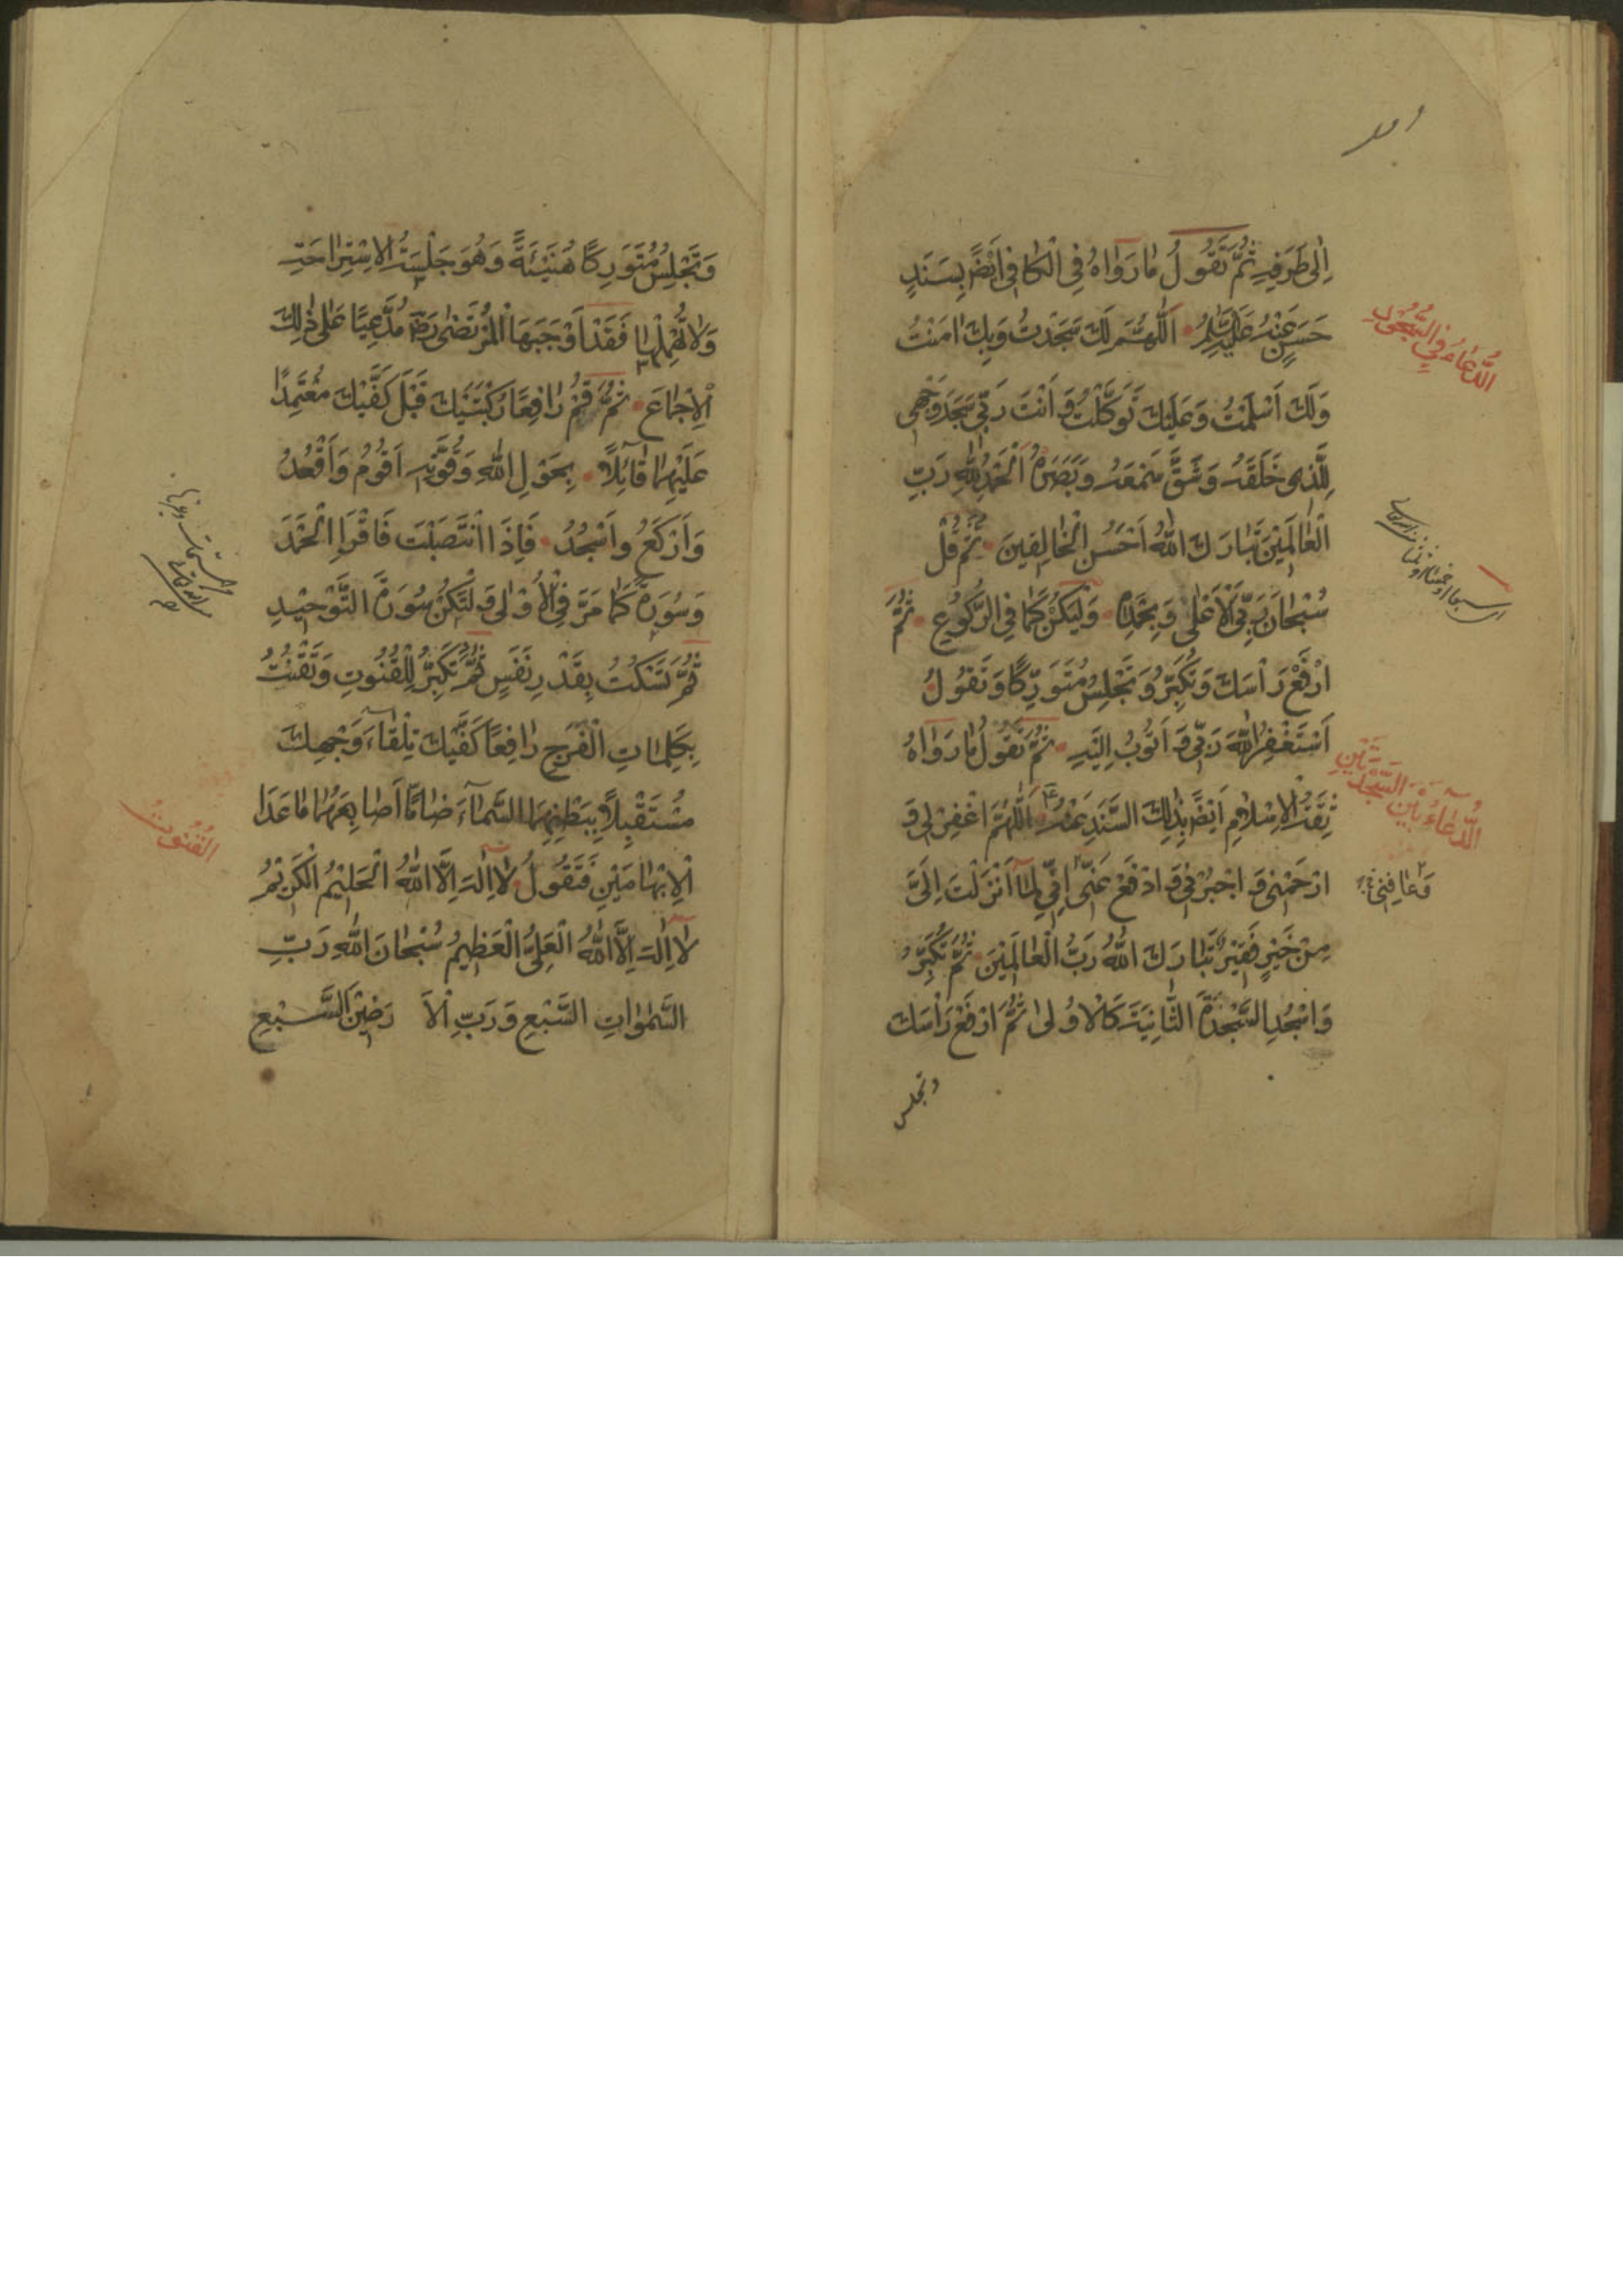 اِلىٰ طَرَفِهِ ثُمَّ تَقُولُ مٰا رَوٰاهُ فِي الْكٰافِي اَيْضًا بِسَنَدٍ
حَسَنٍ عَنْهُ عَلَيْهِ السَّلٰمُ اَللّٰهُمَّ لَكَ سَجَدْتُ وَبِكَ اٰمَنْتُ
وَلَكَ اَسْلَمْتُ وَعَلَيْكَ تَوَكَّلْتُ وَ اَنْتَ رَبِّي سَجَدَ وَجْهِي
لِلَّذِي خَلَقَهُ وَشَقَّ سَمْعَهُ وَبَصَرَهُ اَلْحَمْدُ لِلّٰهِ رَبِّ
الْعٰالَمِيْنَ تَبٰارَكَ اللّٰهُ اَحْسَنُ الْخٰالِقِينَ ثُمَّ قُلْ
سُبْحٰانَ رَبِّيَ الْاَعْلىٰ وَبِحَمْدِهِ وَلْيَكُنْ كَمٰا فِي الرُّكُوعِ ثُمَّ
ارْفَعْ رَأْسَكَ وَتُكَبِّرُ وَتَجْلِسُ مُتَوَرِّكًا وَتَقُولُ
اَسْتَغْفِرُ اللّٰهَ رَبِّي وَ اَتُوبُ اِلَيْهِ ثُمَّ تَقُولُ مٰا رَوٰاهُ
ثِقَةُ الْاِسْلٰامِ اَيْضًا بِذٰلِكَ السَّنَدِ عَنْهُ ع اَللّٰهُمَّ اغْفِرْ لِي وَ
ارْحَمْنِي وَ اجْبُرْنِي وَ ادْفَعْ عَنِّي اِنِّي لِمٰا اَنْزَلْتَ اِلَيَّ
مِنْ خَيْرٍ فَقِيْرٌ تَبٰارَكَ اللّٰهُ رَبُّ الْعٰالَمِيْنَ ثُمَّ تُكَبِّرُ
وَاسْجُدِ السَّجْدَةَ الثّٰانِيَةَ كَالْاُولىٰ ثُمَّ ارْفَعْ رَأْسَكَ
وتجلس
الدُّعٰاءُ فِي السُّجُودِ
الدُّعٰاءُ بَيْنَ السَّجْدَتَيْنِ
وَعٰافِنِي
وَتَجْلِسُ مُتَوَرِكًا هُنَيْئَةً وَهُوَ جَلْسَةُ الْاِسْتِرٰاحَةِ
وَلٰا تُهْمِلْهٰا فَقَدْ اَوْجَبَهَا الْمُرْتَضٰى رَضِ مُدَّعِيًا عَلٰى ذٰلِكَ
الْاِجْمٰاعَ ثُمَّ قُمْ رٰافِعًا رُكْبَتَيْكَ قَبْلَ كَفَّيْكَ مُعْتَمِدًا
عَلَيْهِمٰا قٰائِلًا بِحَوْلِ اللّٰهِ وَقُوَّتِهِ اَقُومُ وَاَقْعُدُ
وَاَرْكَعُ وَاَسْجُدُ فَاِذَا انْتَصَبْتَ فَاقْرَاِ الْحَمْدَ
وَسُورَةً كَمٰا مَرَّ فِي الْاُوْلىٰ وَ لْتَكُنْ سُورَةَ التَّوْحِيْدِ
ثُمَّ تَسْكُتُ بِقَدْرِ نَفَسٍ ثُمَّ تُكَبِّرُ لِلْقُنُوتِ وَتَقْنُتُ
بِكَلِمٰاتِ الْفَرَجِ رٰافِعًا كَفَّيْكَ تِلْقٰاءَ وَجْهِكَ
مُسْتَقْبِلًا بِبَطْنِهِمَا السَّمٰاءَ ضٰامًّا اَصٰابِعَهُمٰا مٰا عَدَا
الْاِبْهٰامَيْنِ فَتَقُولُ لٰا اِلٰهَ اِلَّا اللّٰهُ الْحَلِيْمُ الْكَرِيْمُ
لٰا اِلٰهَ اِلَّا اللّٰهُ الْعَلِيُّ الْعَظِيمُ سُبْحٰانَ اللّٰهِ رَبِّ
السَّمٰوٰاتِ السَّبْعِ وَرَبِّ الْاَرَضِيْنَ السَّبْعِ
القُنُوتُ